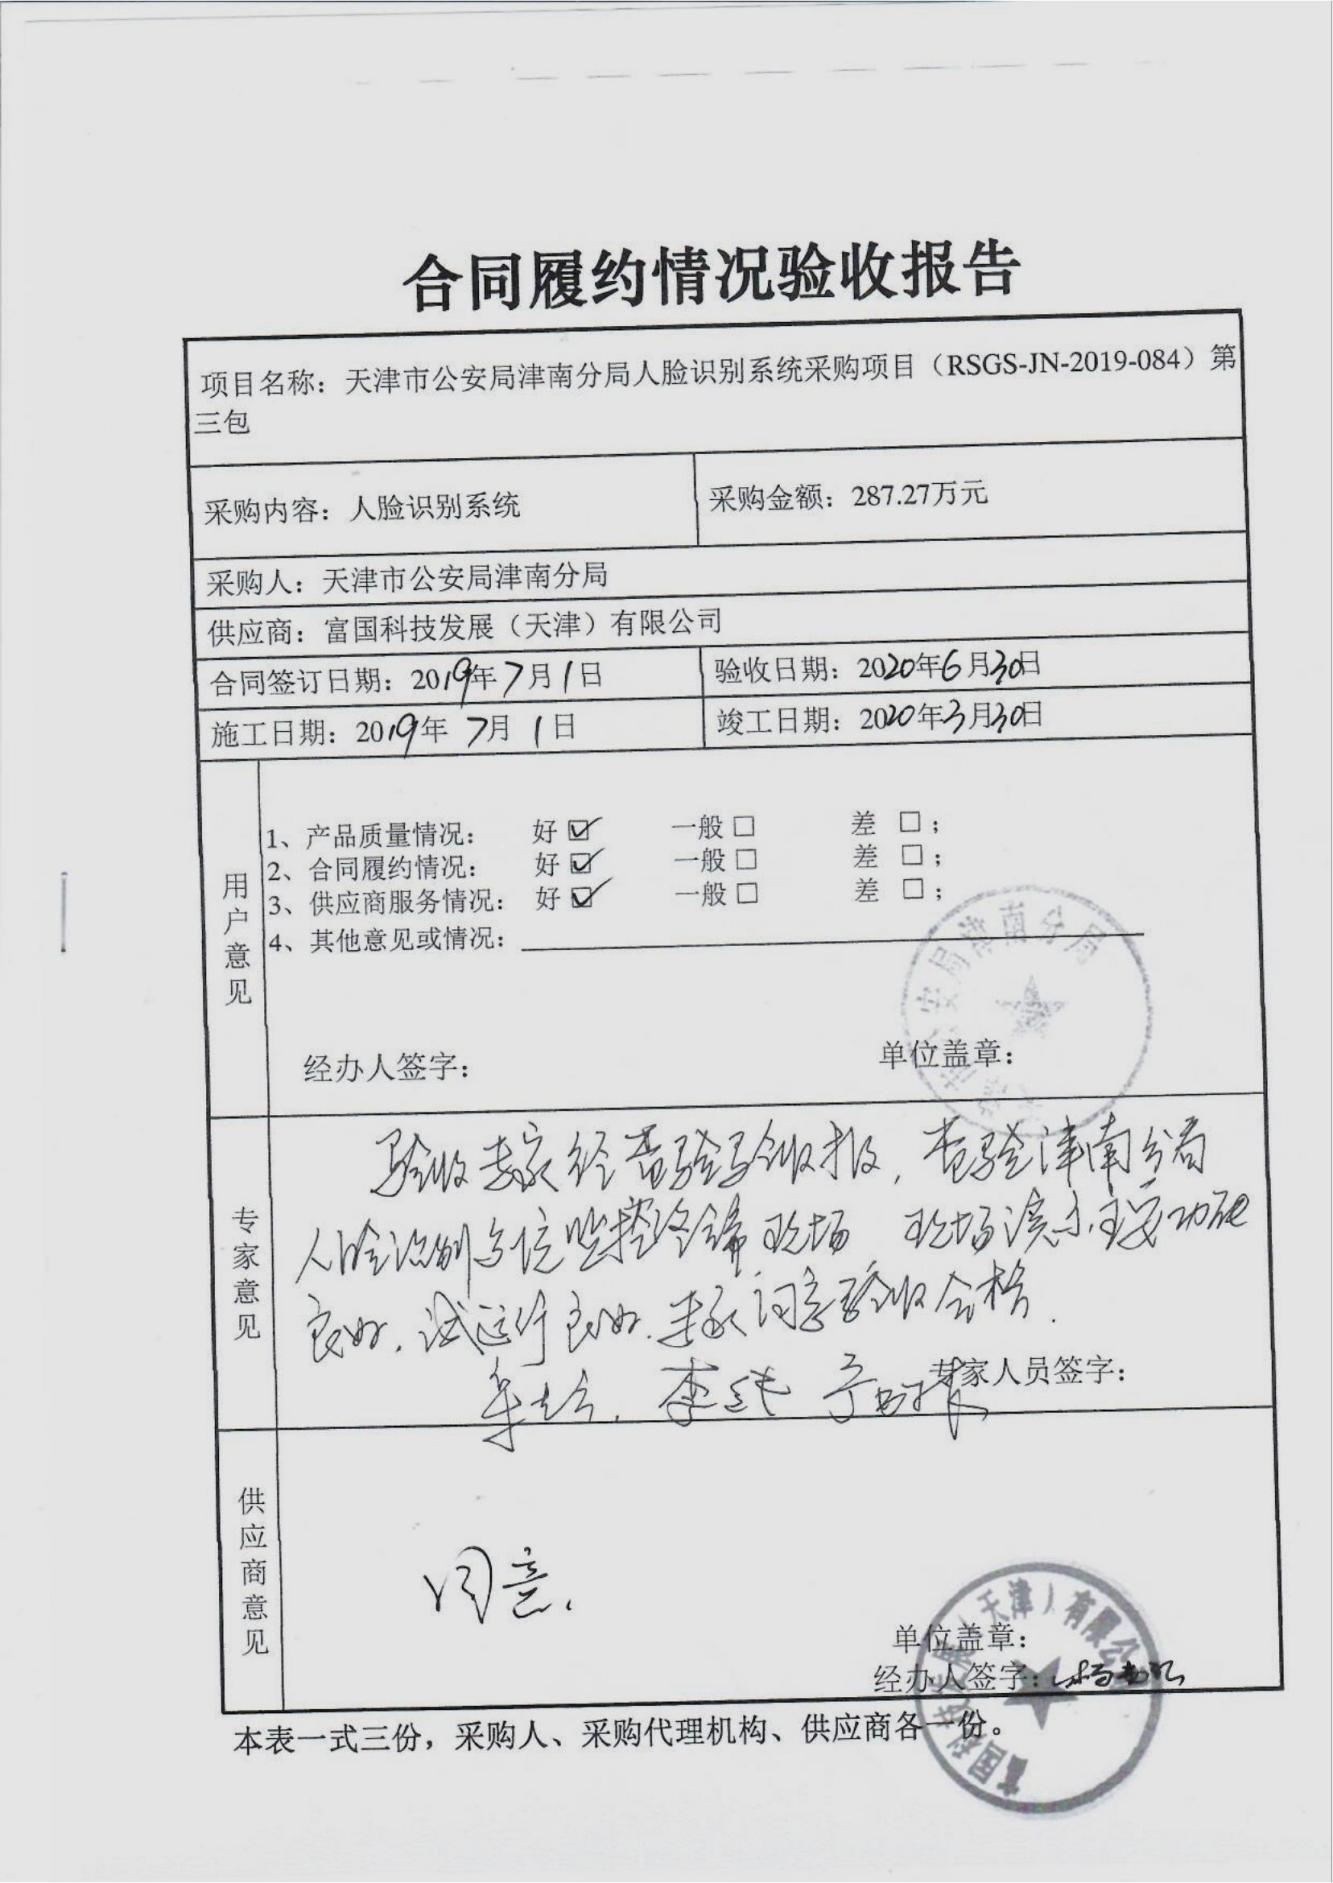 合同履约情况验收报告
项目名称：天津市公安局津南分局人脸识别系统采购项目（RSGS-JN-2019-084）第
三包
采购内容：人脸识别系统
采购金额：287.27万元
采购人：天津市公安局津南分局
供应商：富国科技发展（天津）有限公司
合同签订日期：2019年7月1日
验收日期：2020年6月30日
施工日期：2019年7月1日
竣工日期：2020年3月30日
用户意见
1、产品质量情况： 好☑ 一般□ 差□；
2、合同履约情况： 好☑ 一般□ 差□；
3、供应商服务情况： 好☑ 一般□ 差□；
4、其他意见或情况：
经办人签字：
单位盖章：
安局津南分局
专家意见
验收专家经查验验收报，查验津南分局
人脸识别 监控 现场 现场演示主要功能
良好，试运行良好，专家同意验收合格.
专家人员签字：
供应商意见
同意，
单位盖章：
经办人签字：
富国科技发展（天津）有限公
本表一式三份，采购人、采购代理机构、供应商各一份。